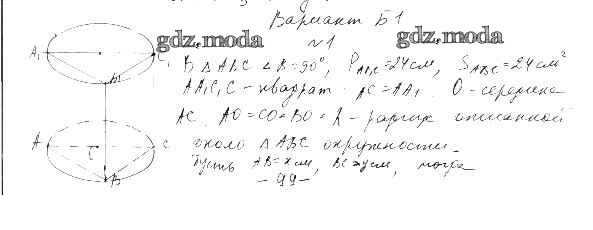 Вариант Б1
gdz.moda gdz.moda
№1
A₁ C₁ В ΔABC ∠B=90°, P_ABC=24см, S_ABC=24см²
B₁ AA₁C₁C - квадрат AC=AA₁. O - середина
AC. AO=CO=BO=R - радиус описанной
A C около ΔABC окружности.
B Пусть AB=x см, BC=y см, тогда
- 99 -